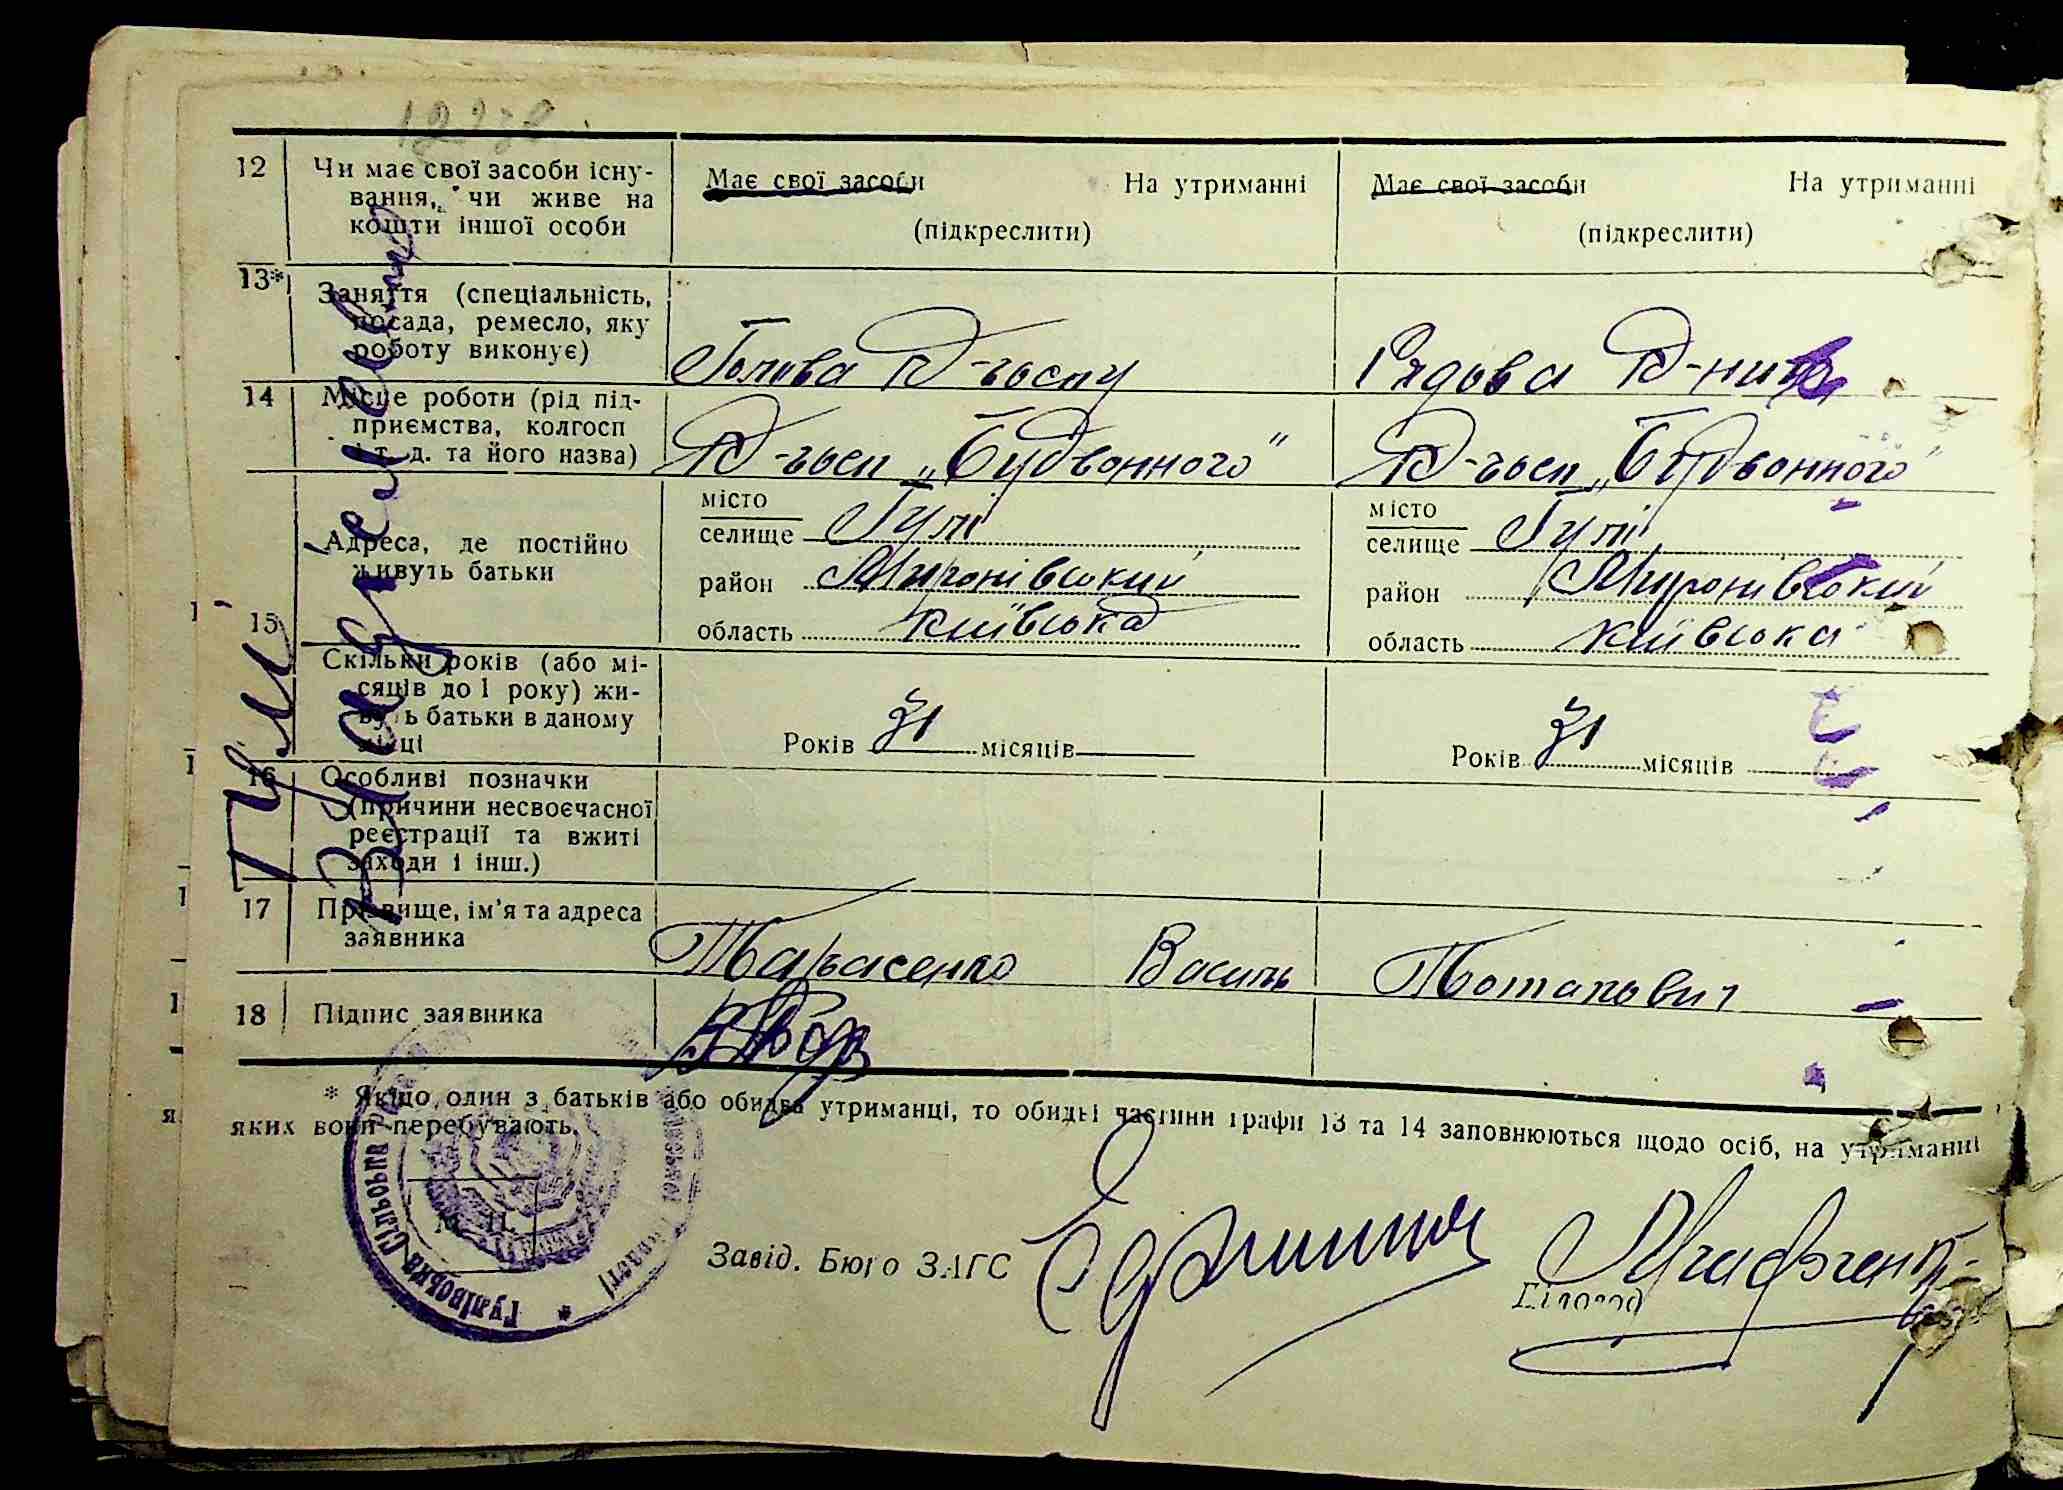 12
Чи має свої засоби існу-
вання, чи живе на
кошти іншої особи
Має свої засоби На утриманні
(підкреслити)
Має свої засоби На утриманні
(підкреслити)
13*
Заняття (спеціальність,
посада, ремесло, яку
роботу виконує)
Голова К-госпу
Рядова К-ниця
14
Місце роботи (рід під-
приємства, колгосп
і т. д. та його назва)
К-госп „Будьонного"
К-госп „Будьонного"
15
Адреса, де постійно
живуть батьки
місто
селище Гулі
район Миронівський
область Київська
місто
селище Гулі
район Миронівський
область Київська
Скільки років (або мі-
сяців до 1 року) жи-
вуть батьки в даному
місці
Років 31 місяців
Років 31 місяців
16
Особливі позначки
(причини несвоєчасної
реєстрації та вжиті
заходи і інш.)
17
Прізвище, ім'я та адреса
заявника
Тарасенко Василь Потапович
18
Підпис заявника
* Якщо один з батьків або обидва утриманці, то обидві частини графи 13 та 14 заповнюються щодо осіб, на утриманні
яких вони перебувають.
М. П.
Гулівська сільська
області
Завід. Бюро ЗАГС
Діловод